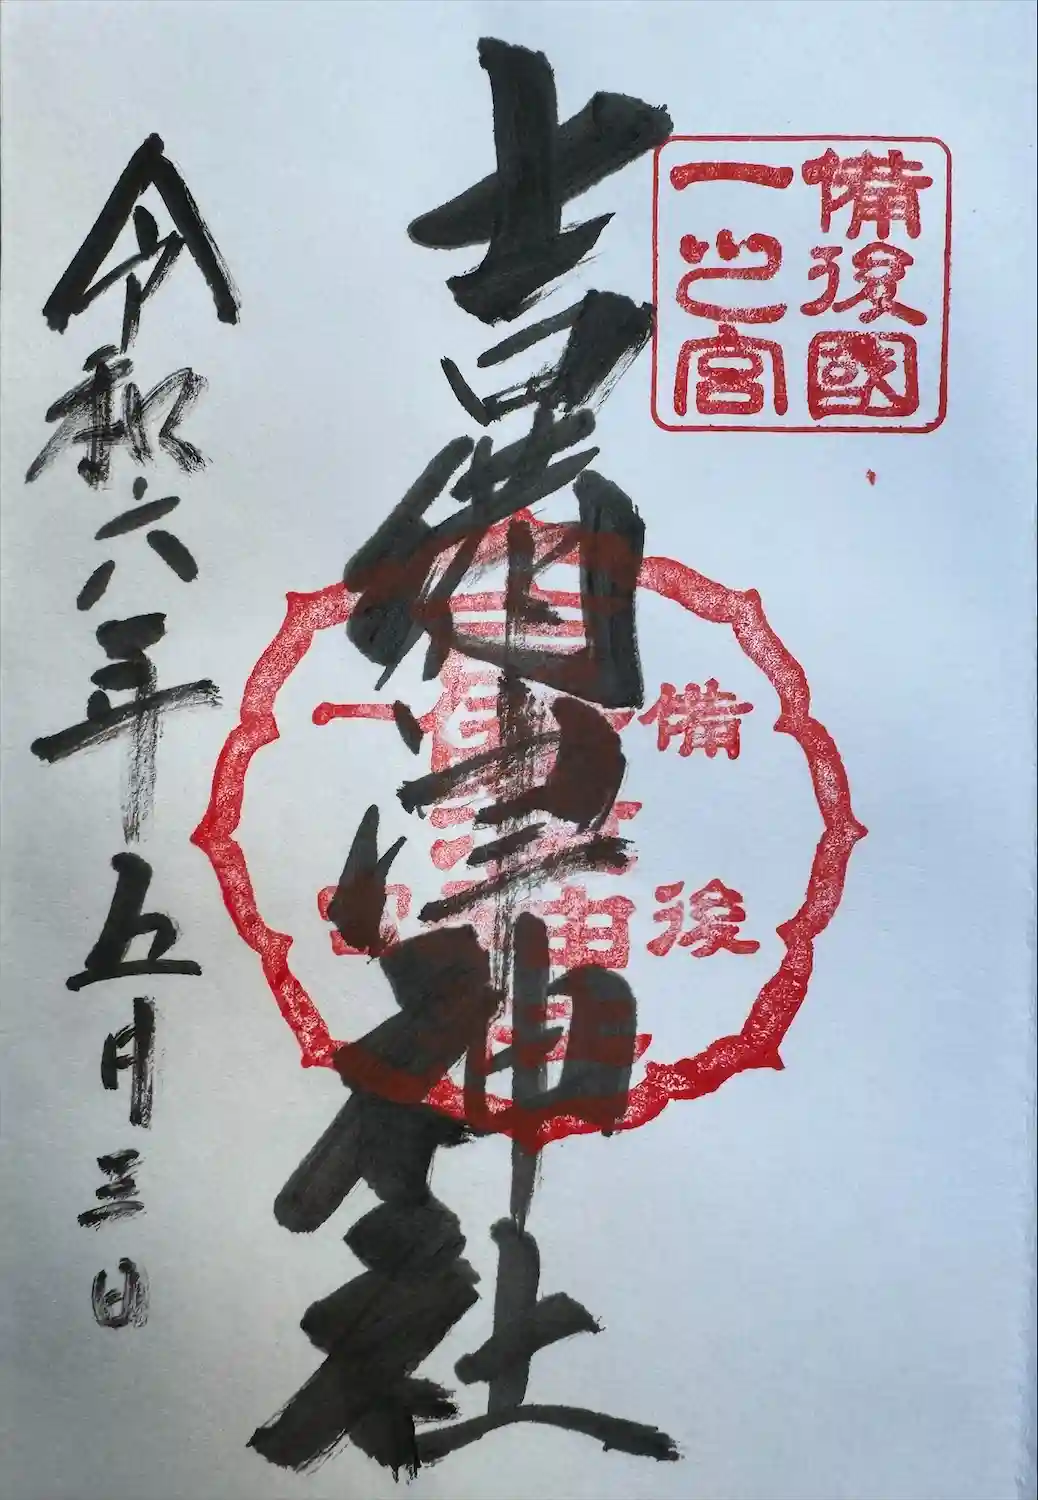 備後國
一之宮
吉備津神社
備後
一宮
令和六年五月三日